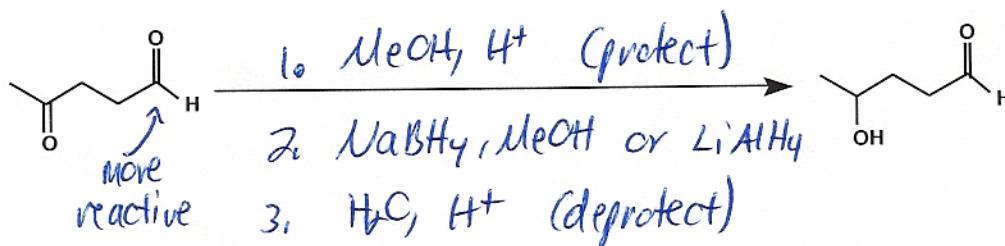 O
H
O
more
reactive
1. MeOH, H+ (protect)
2. NaBH4, MeOH or LiAlH4
3. H2O, H+ (deprotect)
O
H
OH